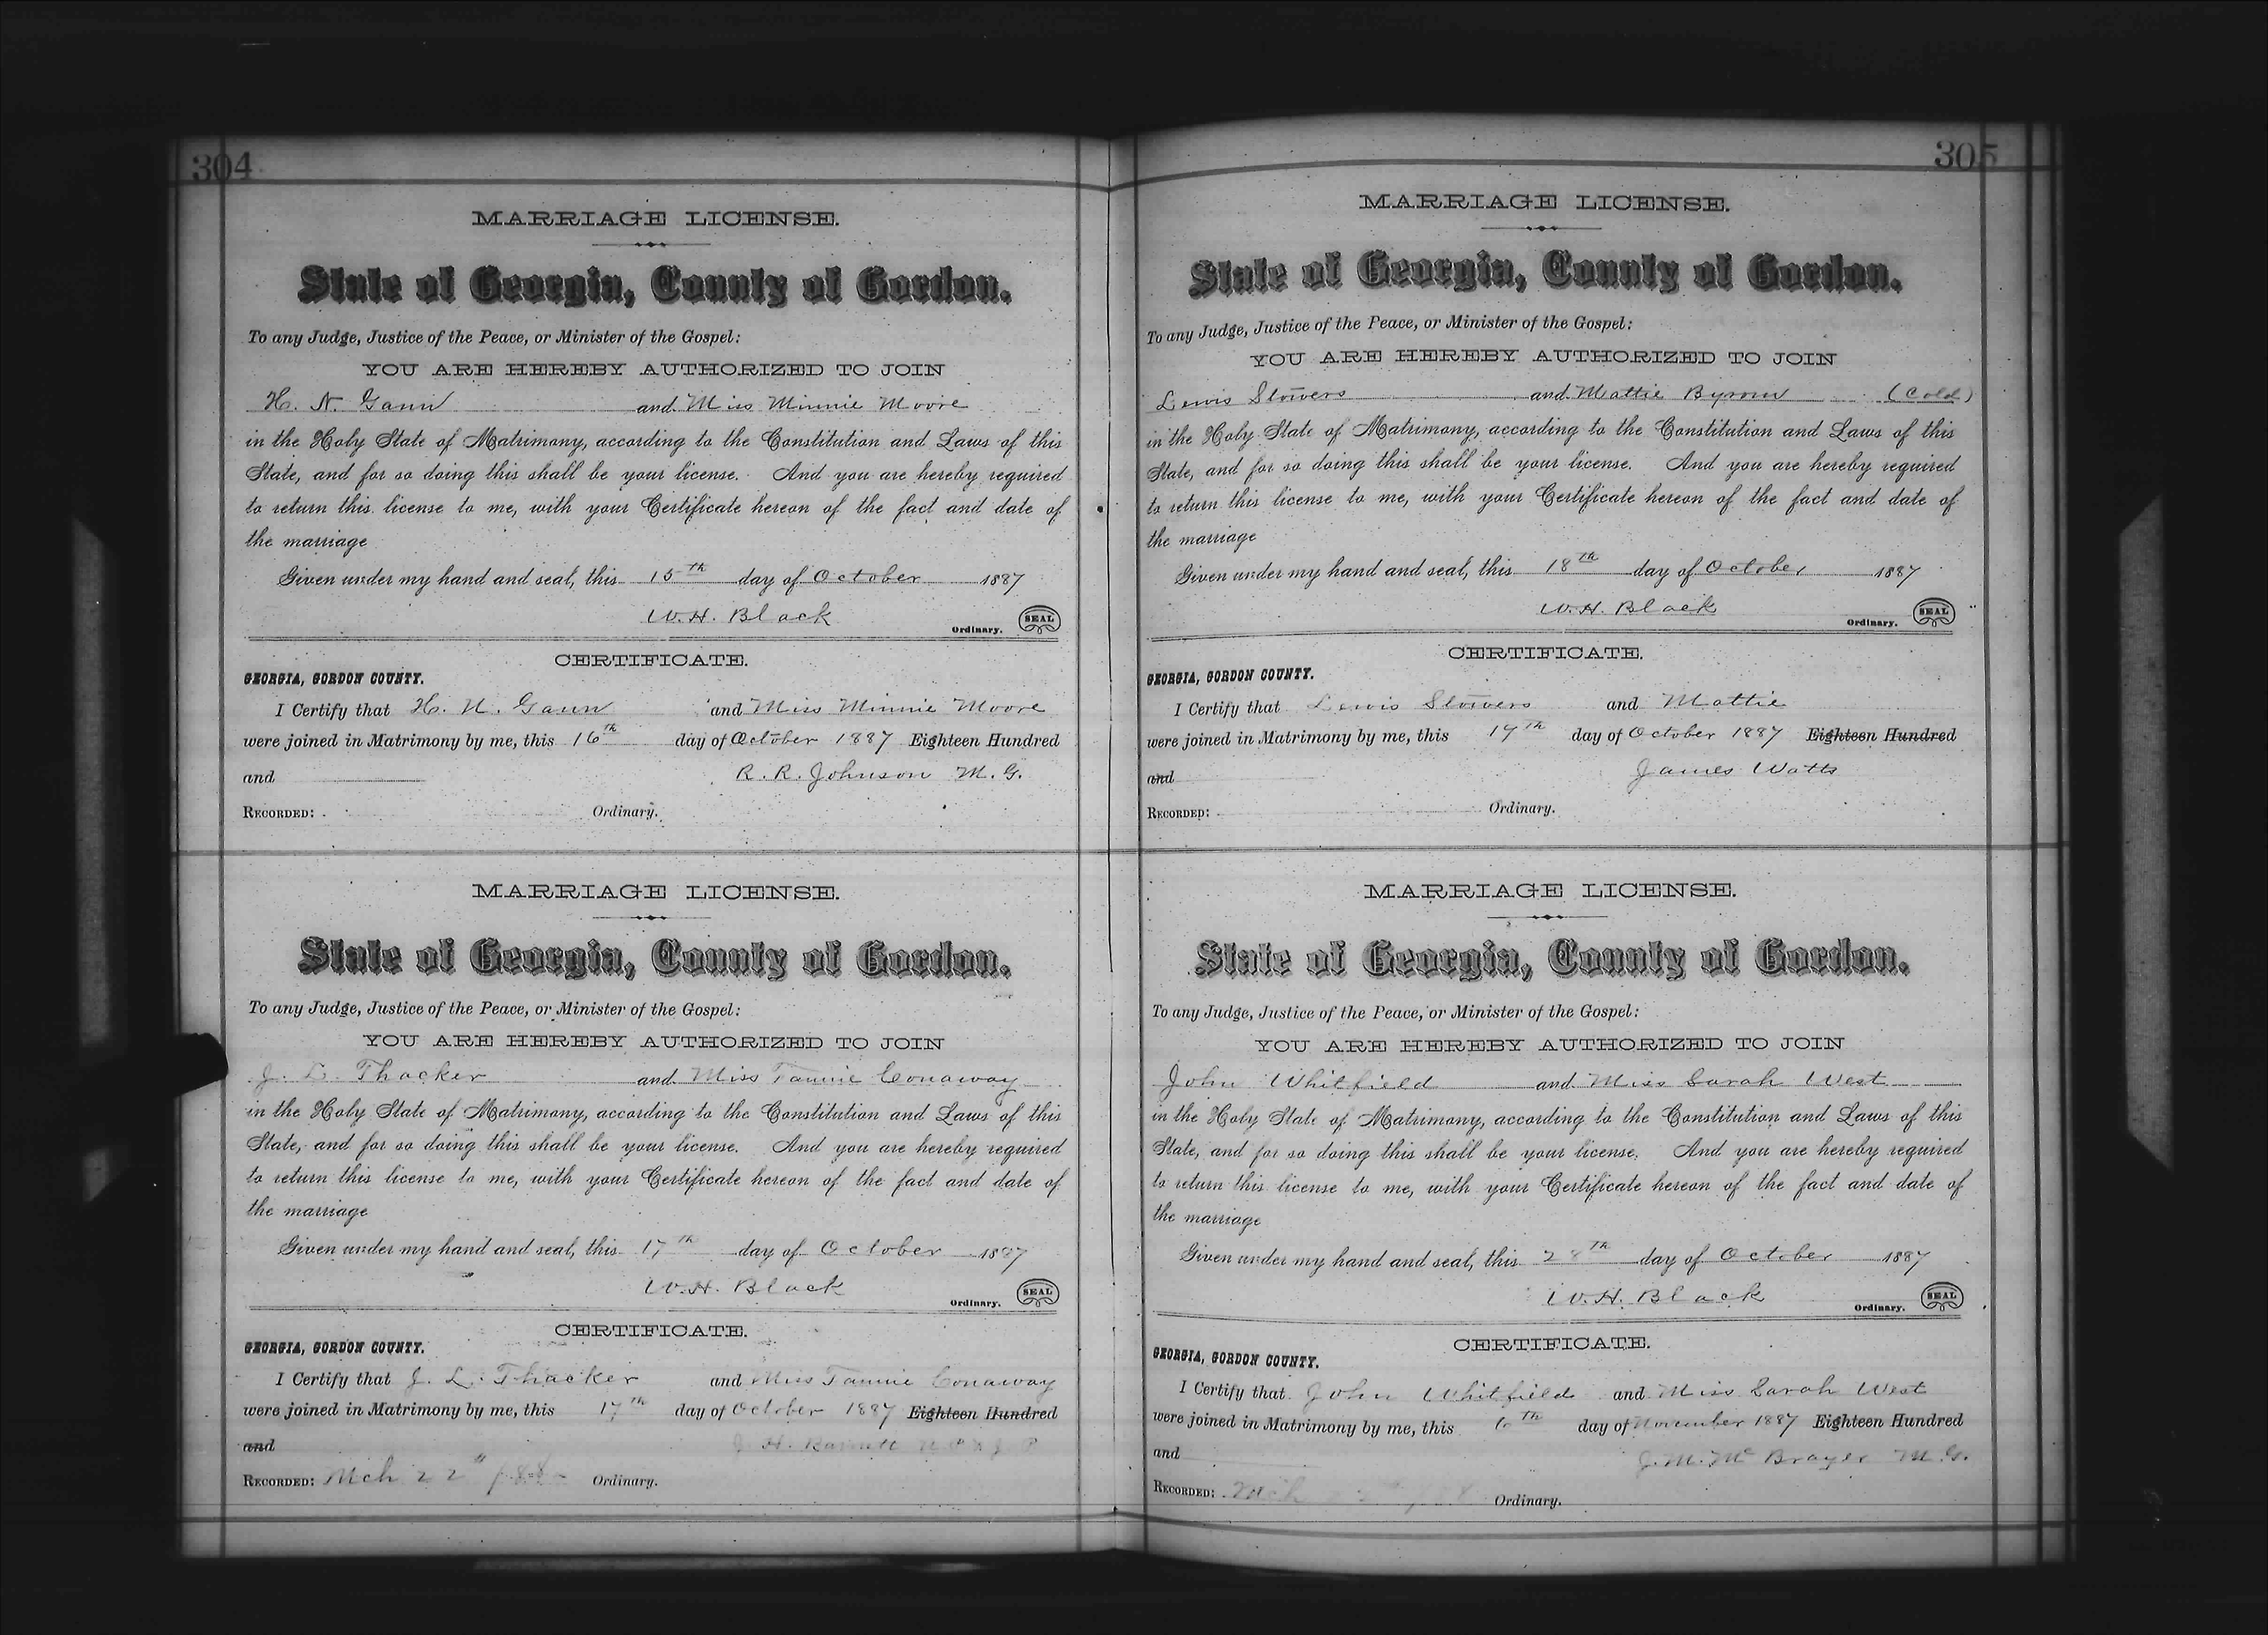 304
MARRIAGE LICENSE.
State of Georgia, County of Gordon.
To any Judge, Justice of the Peace, or Minister of the Gospel:
YOU ARE HEREBY AUTHORIZED TO JOIN
H. N. Gann and Miss Minnie Moore
in the Holy State of Matrimony, according to the Constitution and Laws of this
State, and for so doing this shall be your license. And you are hereby required
to return this license to me, with your Certificate hereon of the fact and date of
the marriage
Given under my hand and seal, this 15th day of October 1887
W. H. Black
Ordinary. SEAL
CERTIFICATE.
GEORGIA, GORDON COUNTY.
I Certify that H. N. Gann and Miss Minnie Moore
were joined in Matrimony by me, this 16th day of October 1887 Eighteen Hundred
and R. R. Johnson M. G.
RECORDED: Ordinary.
MARRIAGE LICENSE.
State of Georgia, County of Gordon.
To any Judge, Justice of the Peace, or Minister of the Gospel:
YOU ARE HEREBY AUTHORIZED TO JOIN
J. L. Thacker and Miss Fannie Conaway
in the Holy State of Matrimony, according to the Constitution and Laws of this
State, and for so doing this shall be your license. And you are hereby required
to return this license to me, with your Certificate hereon of the fact and date of
the marriage
Given under my hand and seal, this 17th day of October 1887
W. H. Black
Ordinary. SEAL
CERTIFICATE.
GEORGIA, GORDON COUNTY.
I Certify that J. L. Thacker and Miss Fannie Conaway
were joined in Matrimony by me, this 17th day of October 1887 Eighteen Hundred
and J. H. Barnett
RECORDED: Mch 22d 1888 Ordinary.
305
MARRIAGE LICENSE.
State of Georgia, County of Gordon.
To any Judge, Justice of the Peace, or Minister of the Gospel:
YOU ARE HEREBY AUTHORIZED TO JOIN
Lewis Stowers and Mattie Byrom (Cold)
in the Holy State of Matrimony, according to the Constitution and Laws of this
State, and for so doing this shall be your license. And you are hereby required
to return this license to me, with your Certificate hereon of the fact and date of
the marriage
Given under my hand and seal, this 18th day of October 1887
W. H. Black
Ordinary. SEAL
CERTIFICATE.
GEORGIA, GORDON COUNTY.
I Certify that Lewis Stowers and Mattie
were joined in Matrimony by me, this 19th day of October 1887 Eighteen Hundred
and James Watts
RECORDED: Ordinary.
MARRIAGE LICENSE.
State of Georgia, County of Gordon.
To any Judge, Justice of the Peace, or Minister of the Gospel:
YOU ARE HEREBY AUTHORIZED TO JOIN
John Whitfield and Miss Sarah West
in the Holy State of Matrimony, according to the Constitution and Laws of this
State, and for so doing this shall be your license. And you are hereby required
to return this license to me, with your Certificate hereon of the fact and date of
the marriage
Given under my hand and seal, this 28th day of October 1887
W. H. Black
Ordinary. SEAL
CERTIFICATE.
GEORGIA, GORDON COUNTY.
I Certify that John Whitfield and Miss Sarah West
were joined in Matrimony by me, this 6th day of November 1887 Eighteen Hundred
and J. M. McBrayer M. G.
RECORDED: Mch Ordinary.